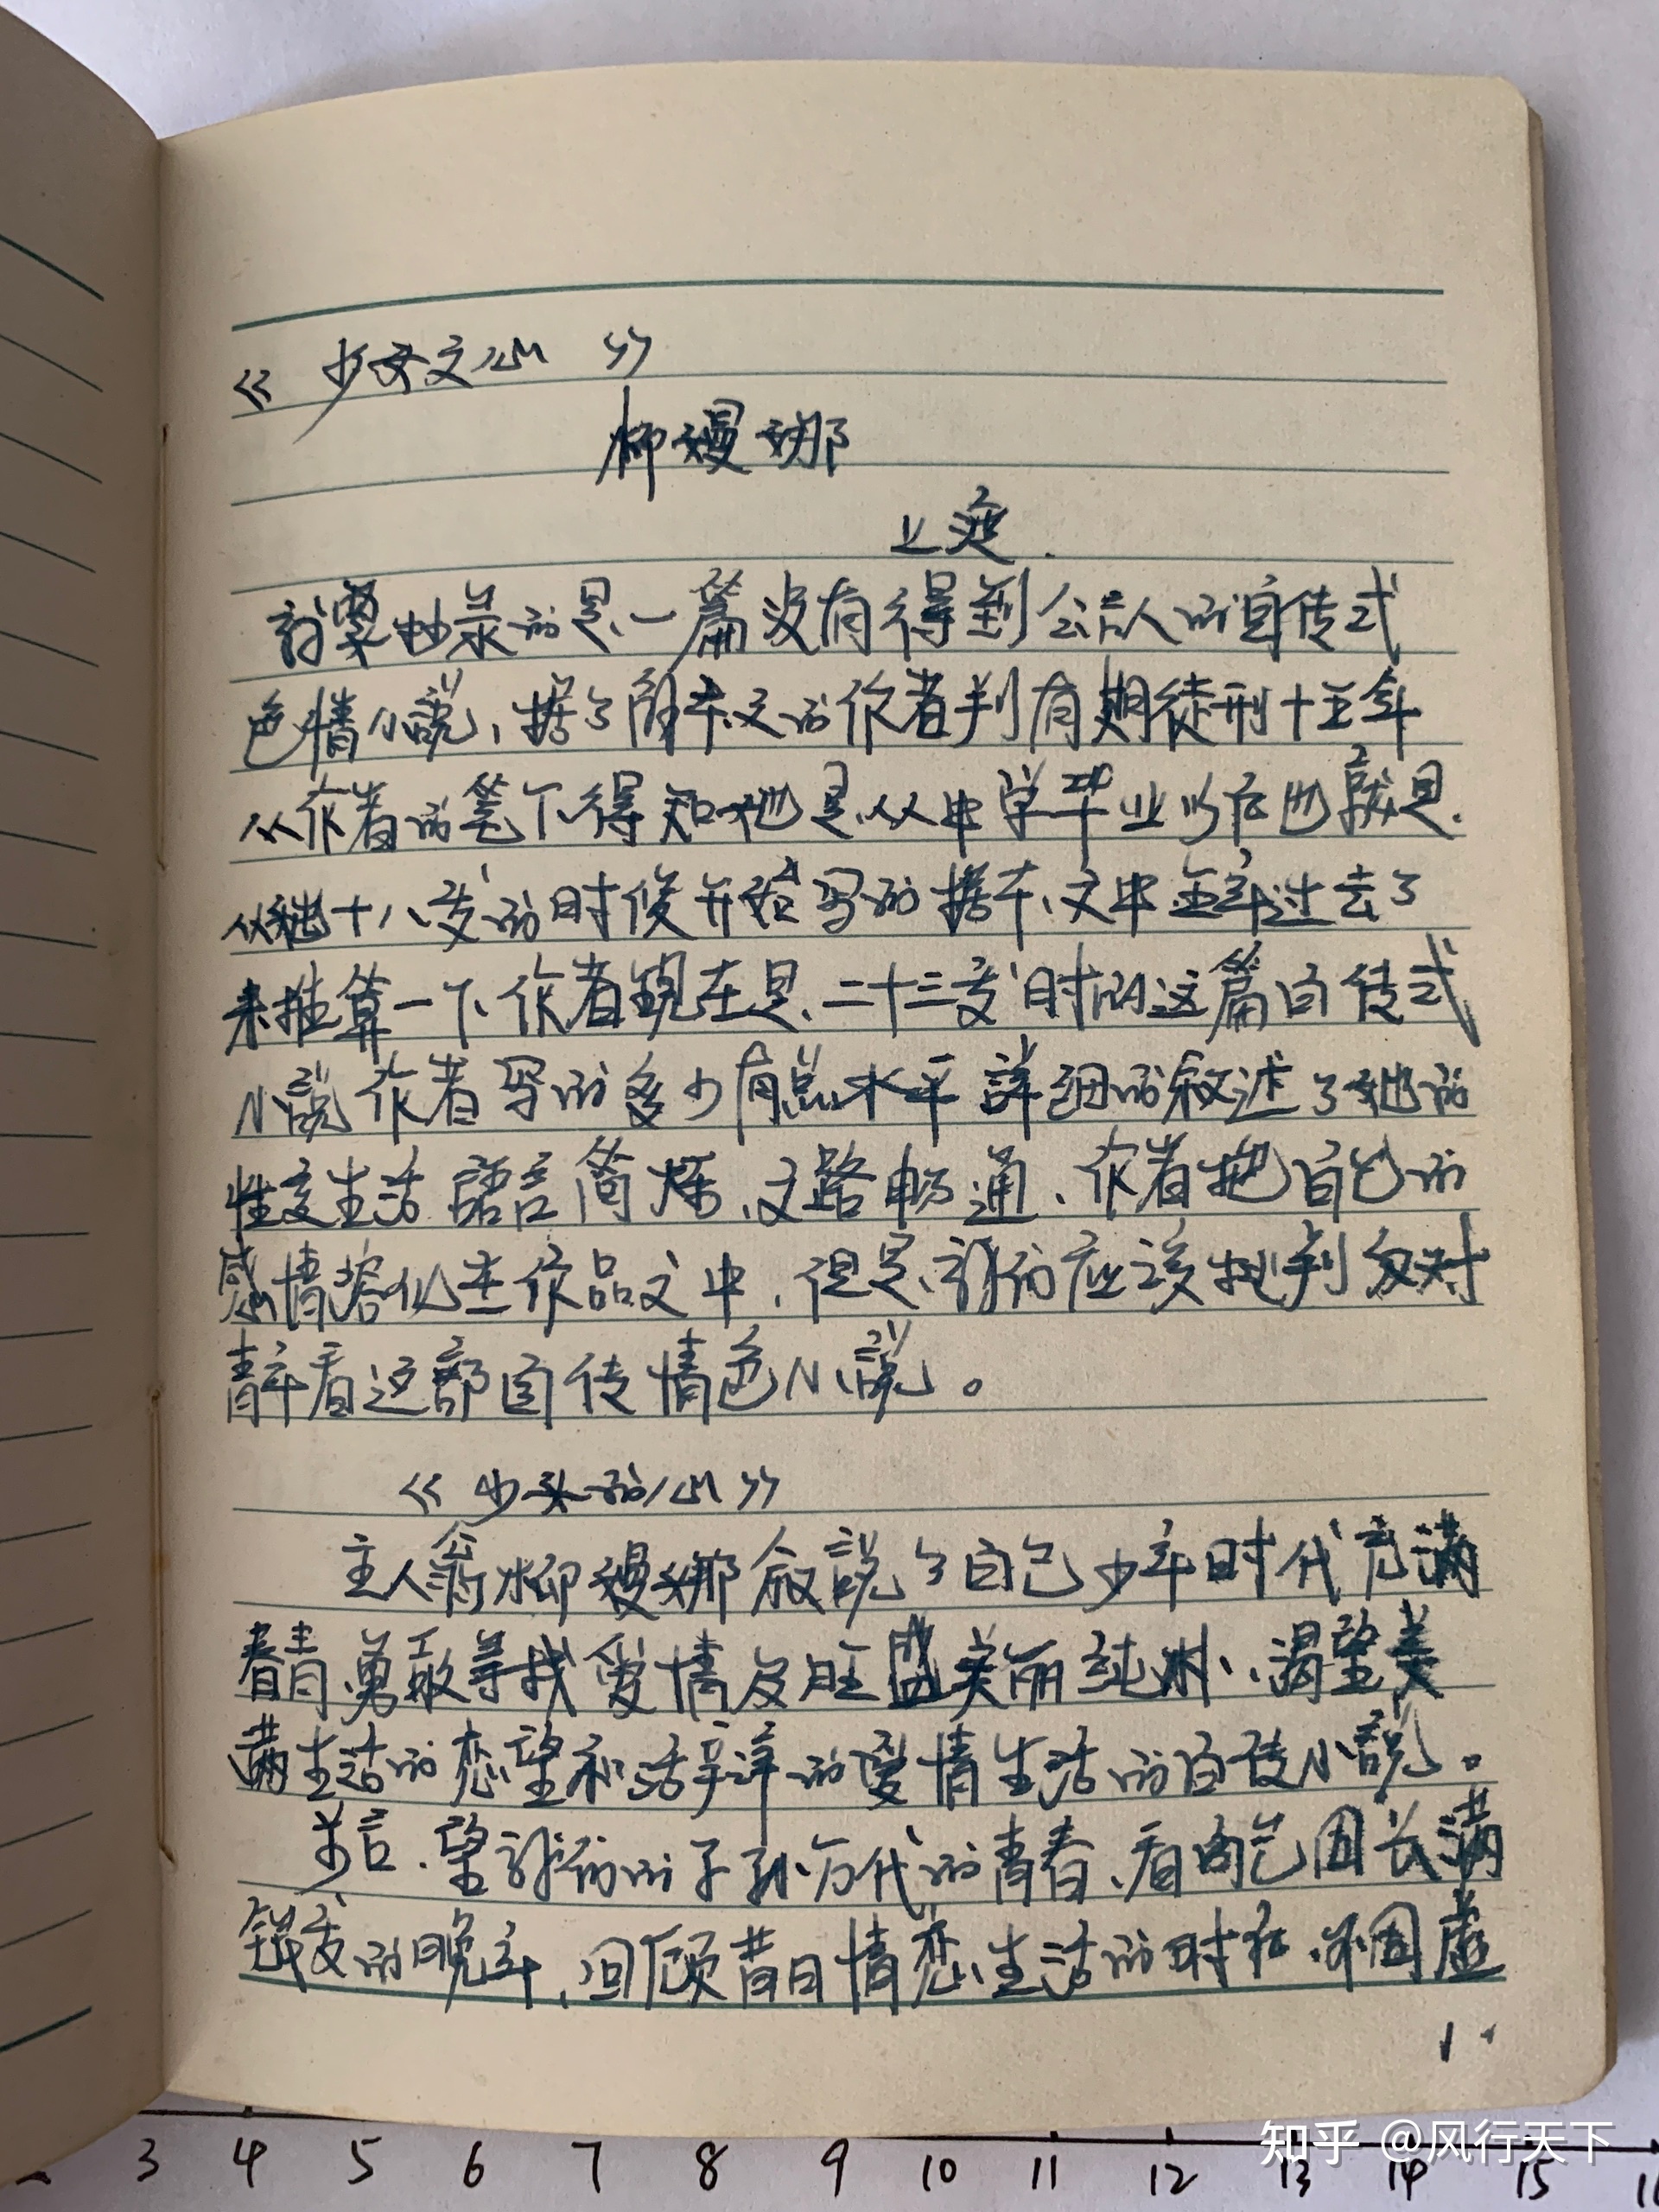 《少女之心》
柳嫚娜
上演.
抄录的是一篇没有得到公认的自传式
色情小說,据了解本文的作者判有期徒刑十五年
从作者的笔下得知她是从中学毕业以后也就是.
从她十八岁的时候开始写的据本文中五年过去了
来推算一下作者现在是二十三岁时的这篇自传式
小說作者写的多少有点水平詳细的叙述了她的
性交生活語言简炼、文路畅通、作者把自己的
感情溶化在作品文中,但是我们应该批判反对
看这部自传情色小說。
《少女的心》
主人翁柳嫚娜叙說了自己少年时代充满
青春勇敢寻找爱情及旺盛美丽纯洁、渴望美
满生活的恋望和活的爱情生活的自传小說。
言、望我们的子孙万代的青春、看自己长满
的晚年,回顾昔日情恋生活的时在、不因虚
1.
知乎 @风行天下
3 4 5 6 7 8 9 10 11 12 13 14 15